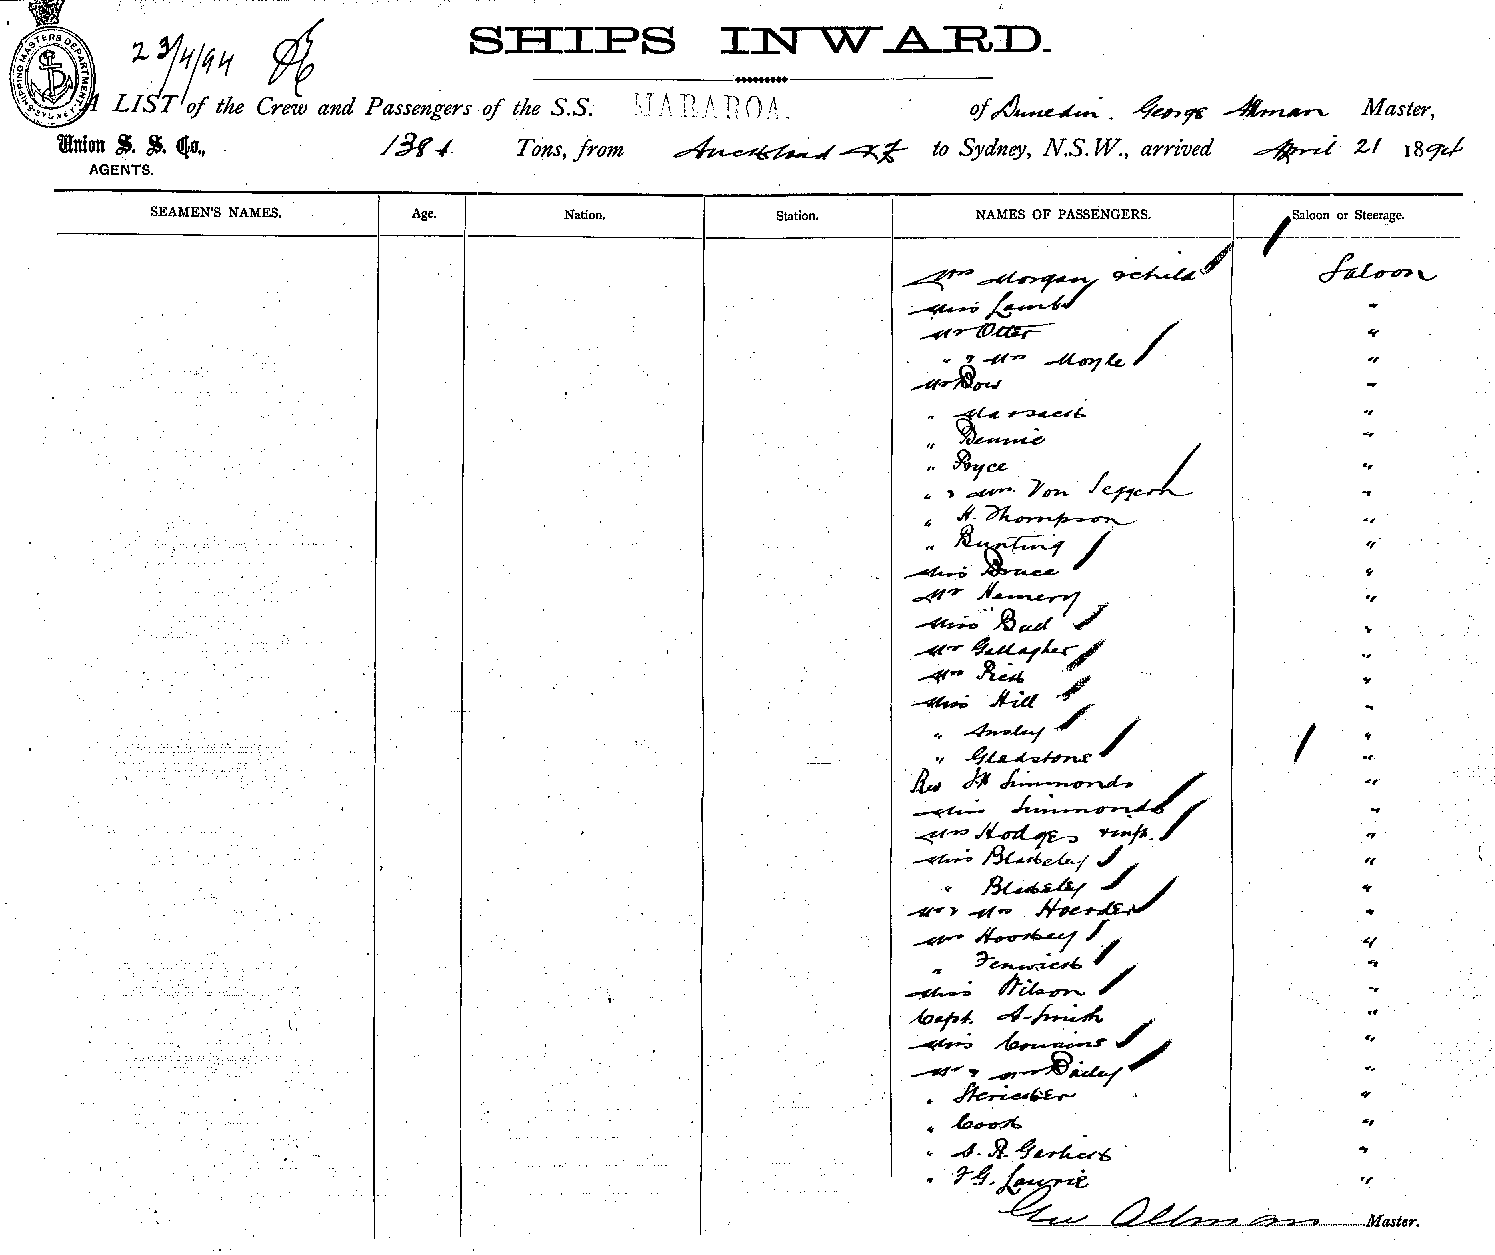 SHIPS INWARD.
SHIPPING MASTERS DEPARTMENT SYDNEY
23/4/94
A LIST of the Crew and Passengers of the S.S. MARAROA. of Dunedin. George Allman Master,
Union S. S. Co., 1381 Tons, from Auckland NZ to Sydney, N.S.W., arrived April 21 1894
AGENTS.
SEAMEN'S NAMES. Age. Nation. Station. NAMES OF PASSENGERS. Saloon or Steerage.
Mrs Morgan & child Saloon
Miss Lamb "
Mr Otter "
" & Mrs Moyle "
Mr Dow "
" "
" Bennie "
" Pryce "
" & Mrs. Von Seggern "
" H. Thompson "
" Bunting "
Miss Bruce "
Mr Hemery "
Miss Bud "
Mr Gallagher "
Mrs "
Miss Hill "
" Ansley "
" Gladstone "
Rev Simmonds "
Miss Simmonds "
Mrs Hodges & inft. "
Miss Blakeley "
" Blakeley "
Mr & Mrs Hoerder "
Mrs "
" Fenwick "
Miss Wilson "
Capt. A. Smith "
Miss Cousins "
Mr & Mrs Bailey "
" Stericker "
" Cook "
" S. R. "
" F G. Laurie "
Geo Allman Master.